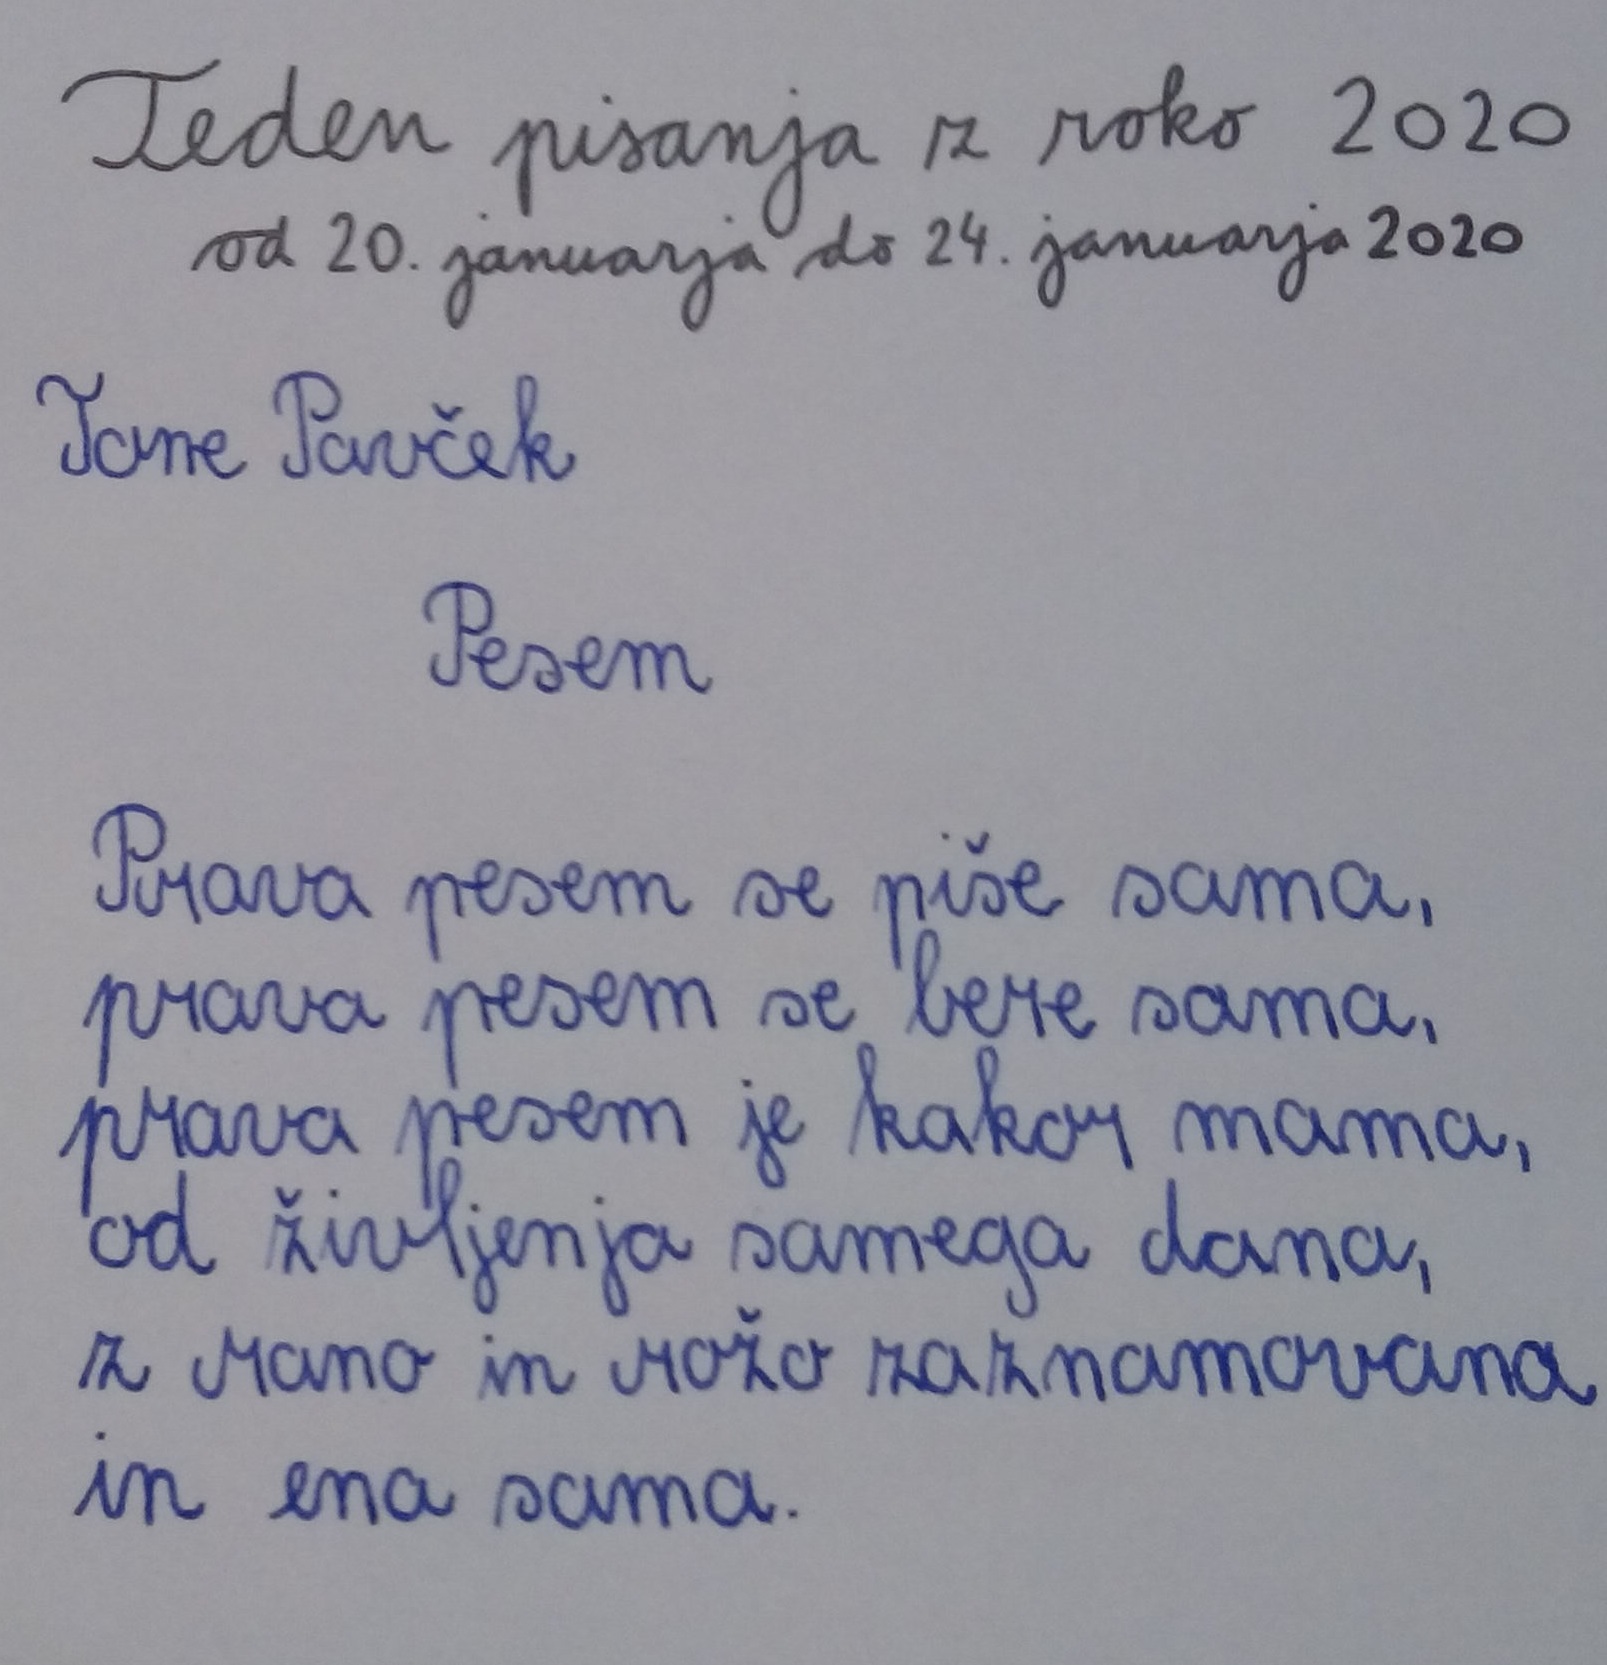 Teden pisanja z roko 2020
od 20. januarja do 24. januarja 2020
Tone Pavček
Pesem
Prava pesem se piše sama,
prava pesem se bere sama,
prava pesem je kakor mama,
od življenja samega dana,
z rano in rožo zaznamovana
in ena sama.